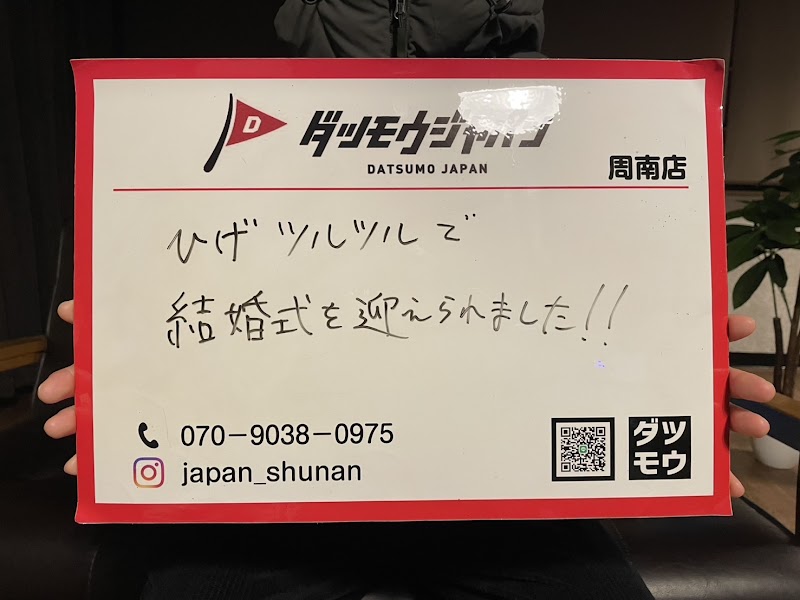 D
ダツモウジャパン
DATSUMO JAPAN
周南店
ひげツルツルで
結婚式を迎えられました!!
070-9038-0975
japan_shunan
ダツ
モウ